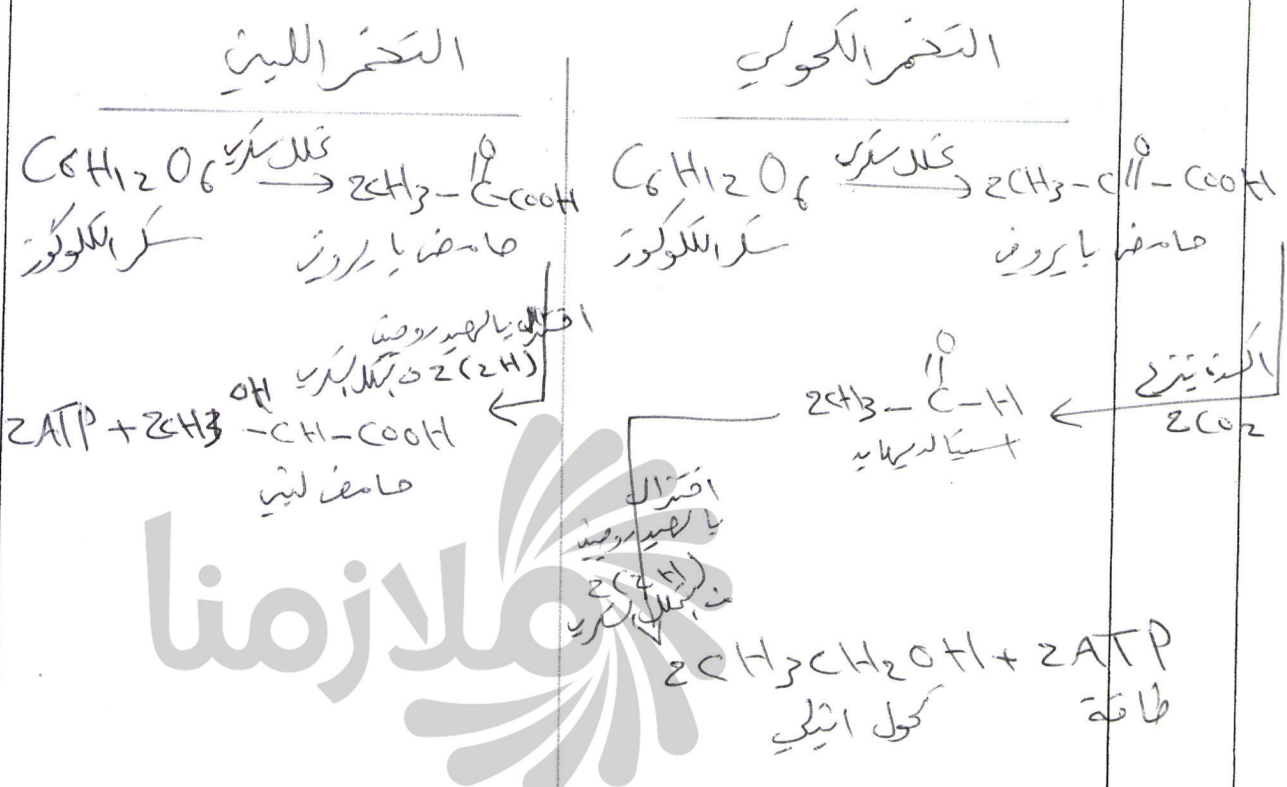 التخمر الكحولي
C6H12O6 تحلل سكري → 2CH3-C(=O)-COOH
سكر الكلوكوز
حامض بايروفي
اكسدة ينزع
2CO2
2CH3-C(=O)-H
استيالديهايد
اختزال
بالهيدروجين
2(2H)
من التحلل السكري
2CH3CH2OH + 2ATP
كحول اثيلي
طاقة
التخمر اللبني
C6H12O6 تحلل سكري → 2CH3-C(=O)-COOH
سكر الكلوكوز
حامض بايروفي
اختزال بالهيدروجين
2(2H) من التحلل السكري
2ATP + 2CH3-CH(OH)-COOH
حامض لبني
ملازمنا